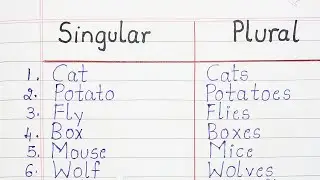 Singular Plural
1. Cat Cats
2. Potato Potatoes
3. Fly Flies
4. Box Boxes
5. Mouse Mice
6. Wolf Wolves